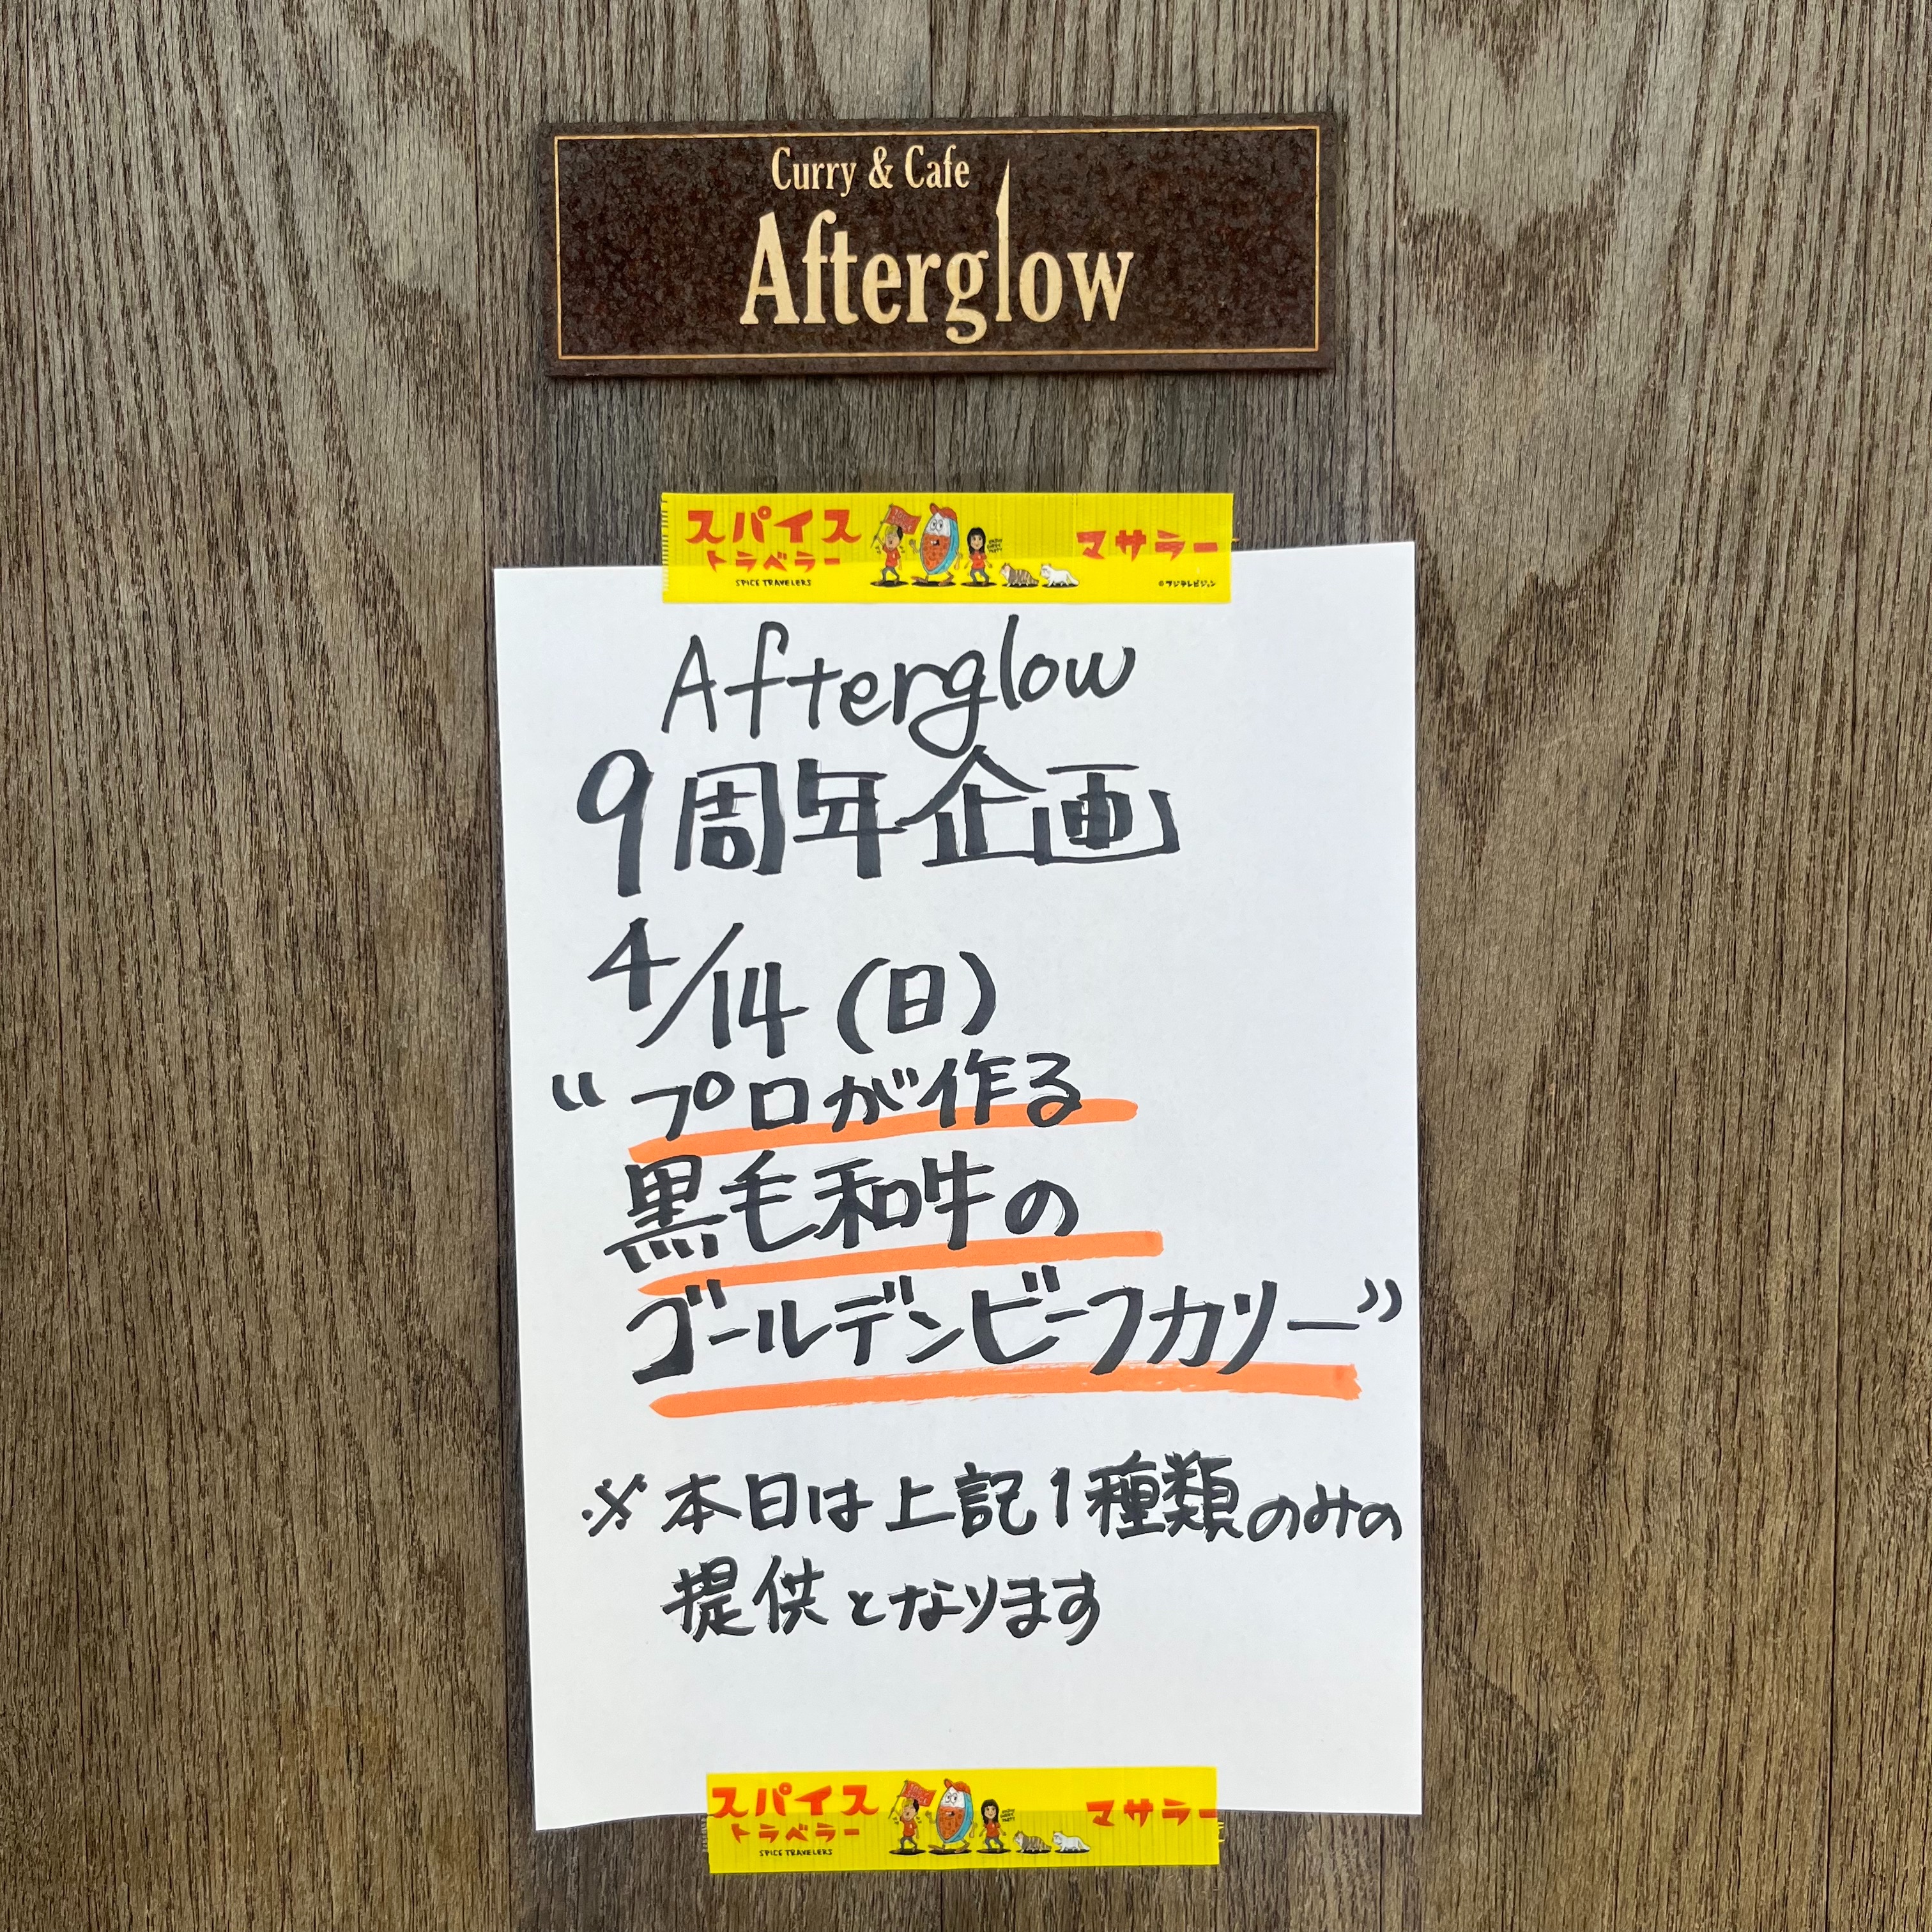 Curry & Cafe
Afterglow
スパイス
トラベラー
SPICE TRAVELERS
マサラー
©フジテレビジョン
Afterglow
9周年企画
4/14(日)
“プロが作る
黒毛和牛の
ゴールデンビーフカリー”
※本日は上記1種類のみの
提供となります
スパイス
トラベラー
SPICE TRAVELERS
マサラー